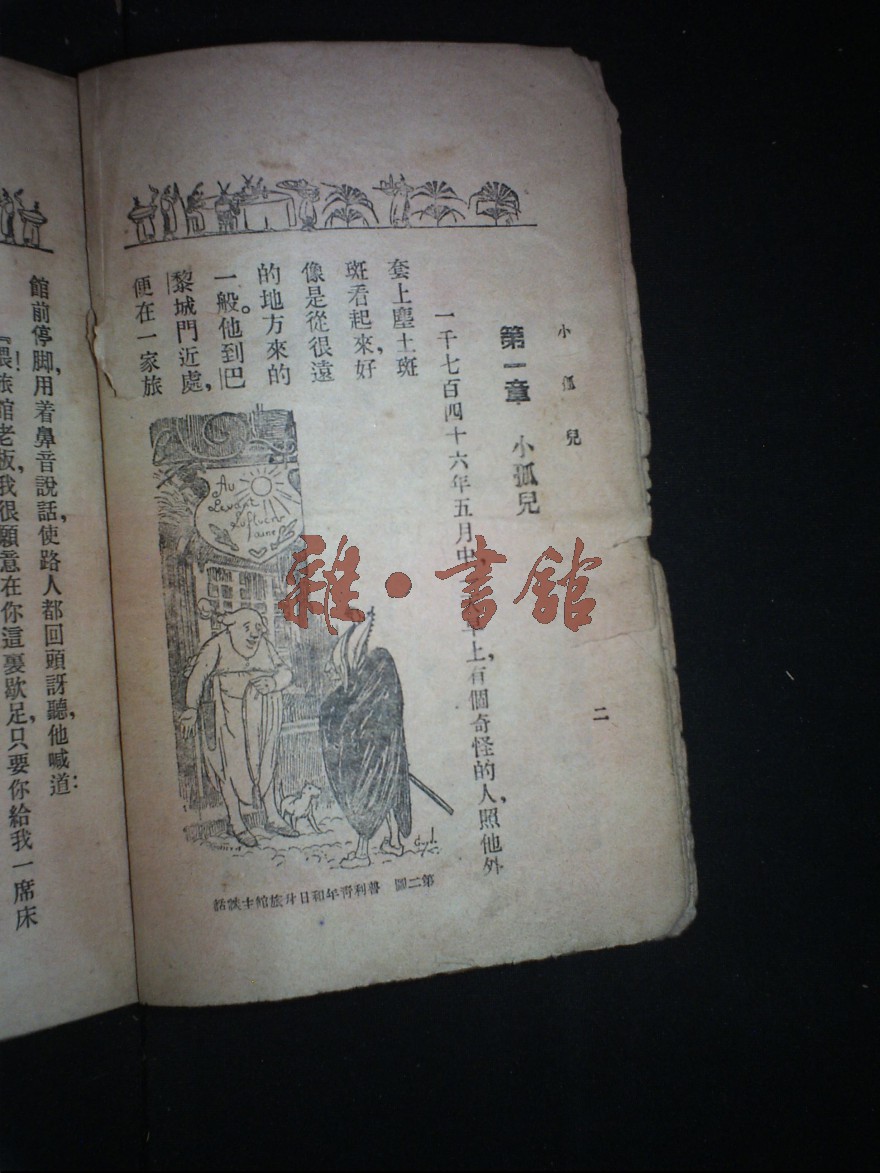 小孤兒
二
第一章 小孤兒
一千七百四十六年五月中 上,有個奇怪的人,照他外
套上塵土斑
斑看起來,好
像是從很遠
的地方來的
一般。他到巴
黎城門近處,
便在一家旅
Au
Levant
第二圖 魯利青年和日升旅館主談話
館前停脚,用着鼻音說話,使路人都回頭訝聽,他喊道:
『喂!旅館老板,我很願意在你這裏歇足,只要你給我一席床
雜·書館